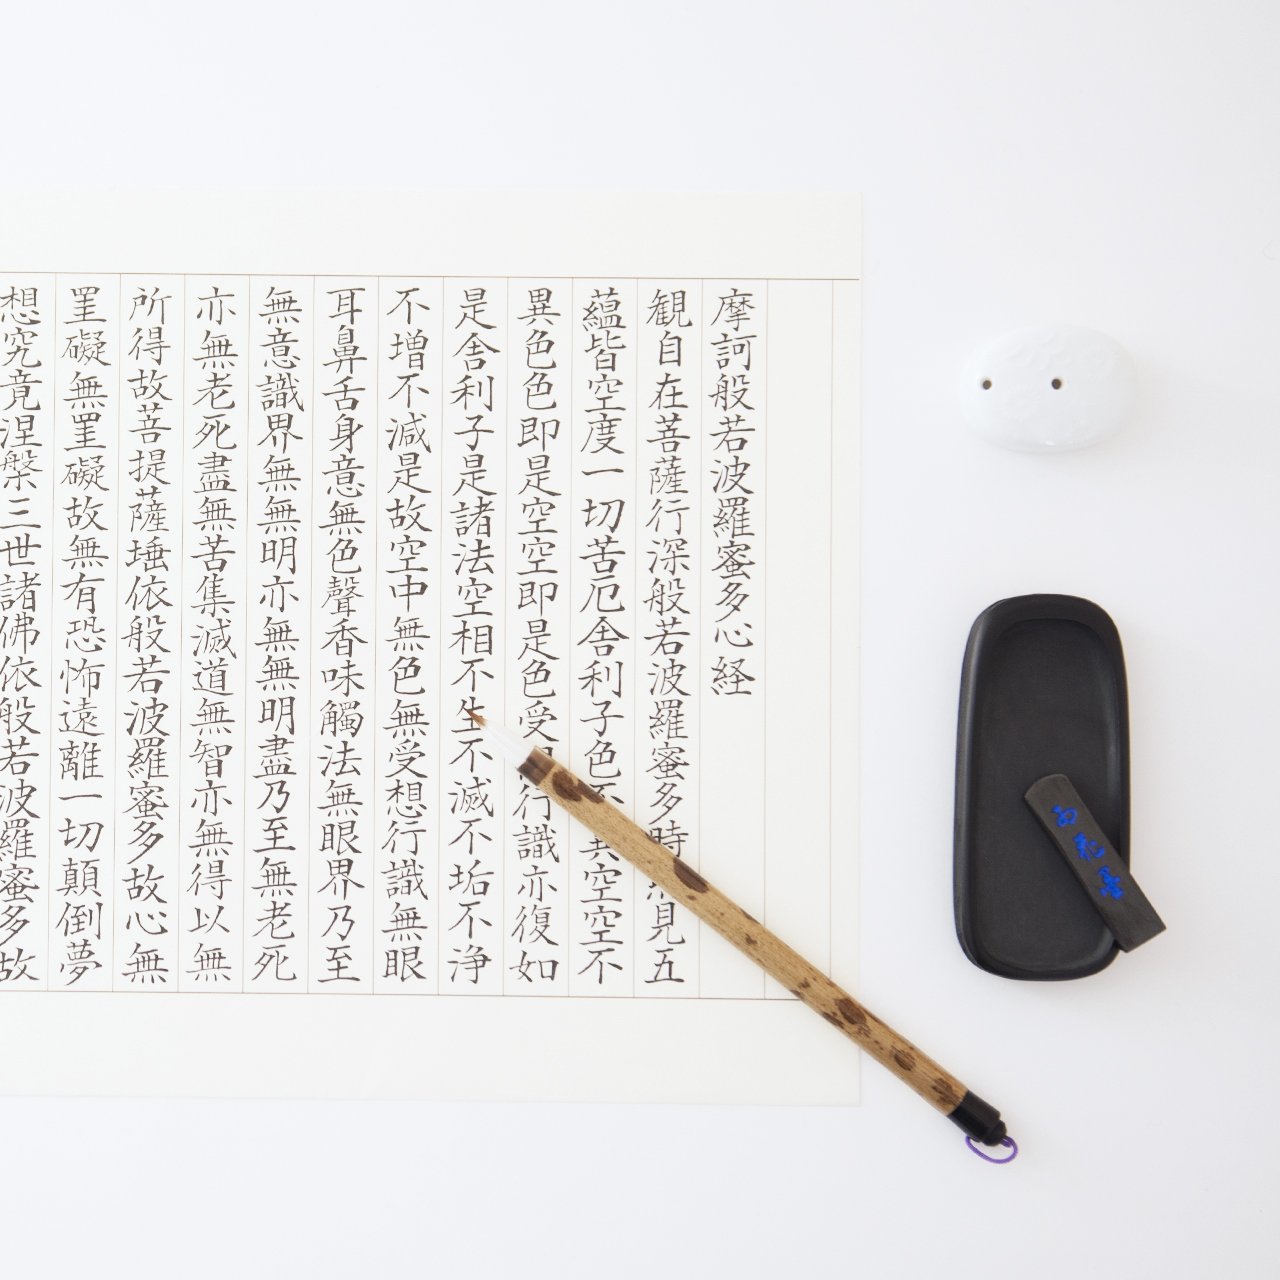 摩訶般若波羅蜜多心経
観自在菩薩行深般若波羅蜜多時見五
蘊皆空度一切苦厄舎利子色不異空空不
異色色即是空空即是色受行識亦復如
是舎利子是諸法空相不生不滅不垢不浄
不増不減是故空中無色無受想行識無眼
耳鼻舌身意無色聲香味觸法無眼界乃至
無意識界無無明亦無無明盡乃至無老死
亦無老死盡無苦集滅道無智亦無得以無
所得故菩提薩埵依般若波羅蜜多故心無
罣礙無罣礙故無有恐怖遠離一切顛倒夢
想究竟涅槃三世諸佛依般若波羅蜜多故